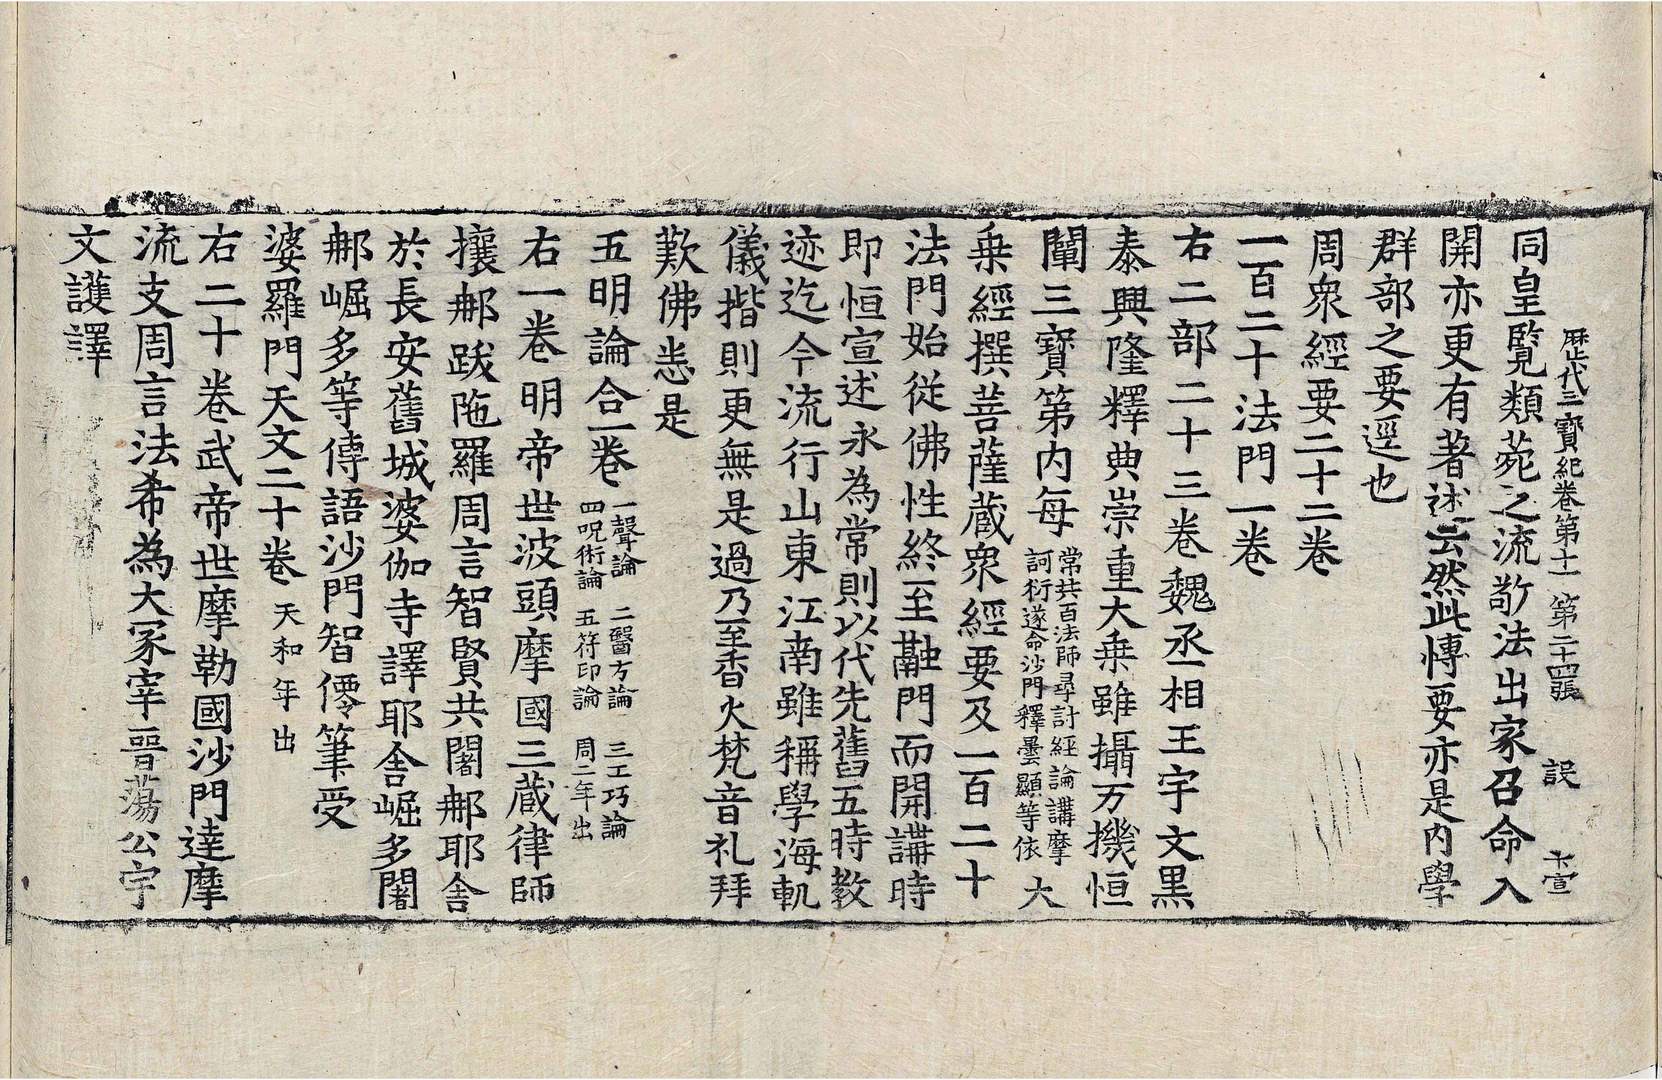 歷代三寶紀卷第十一 第二十四張 設
同皇覽類苑之流敬法出家召命入
開亦更有著述云然此傳要亦是內學
群部之要逕也
周衆經要二十二卷
一百二十法門一卷
右二部二十三卷魏丞相王宇文黑
泰興隆釋典崇重大乗雖攝万機恒
闡三寶第內每常共百法師尋討經論講摩訶衍遂命沙門釋曇顯等依大
乗經撰菩薩蔵衆經要及一百二十
法門始從佛性終至融門而開講時
即恒宣述永為常則以代先舊五時教
迹迄今流行山東江南雖稱學海軌
儀揩則更無是過乃至香火梵音礼拜
歎佛悉是
五明論合一卷一聲論 二醫方論 三工巧論
四呪術論 五符印論 周二年出
右一卷明帝世波頭摩國三蔵律師
攘𨚗跋陁羅周言智賢共闍𨚗耶舍
於長安舊城婆伽寺譯耶舍崛多闍
𨚗崛多等傳語沙門智僊筆受
婆羅門天文二十卷 天和年出
右二十卷武帝世摩勒國沙門達摩
流支周言法希為大冢宰晉蕩公宇
文護譯